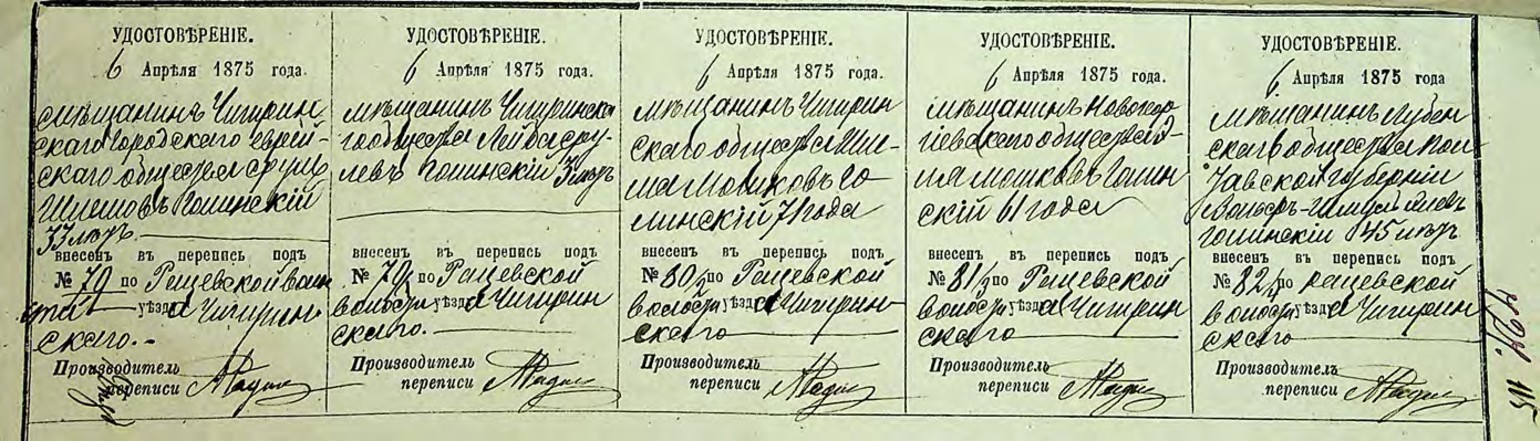 УДОСТОВѢРЕНІЕ.
6 Апрѣля 1875 года.
мѣщанинъ Чигирин-
скаго Городскаго еврей-
скаго общества Сруль
Шлемовъ Голинскій
33 лѣтъ
внесенъ въ перепись подъ
№ 79 по Рацевской волости
уѣзда Чигирин-
скаго.
Производитель
переписи
УДОСТОВѢРЕНІЕ.
6 Апрѣля 1875 года.
мѣщанинъ Чигиринска-
го общества Лейба Сру-
левъ Голинскій 3 лѣтъ
внесенъ въ перепись подъ
№ 79/2 по Рацевской
волости уѣзда Чигирин
скаго.
Производитель
переписи
УДОСТОВѢРЕНІЕ.
6 Апрѣля 1875 года.
мѣщанинъ Чигирин
скаго общества Шле-
ма Мошковъ Го-
линскій 71 года
внесенъ въ перепись подъ
№ 80/ по Рацевской
волости уѣзда Чигирин-
скаго
Производитель
переписи
УДОСТОВѢРЕНІЕ.
6 Апрѣля 1875 года.
мѣщанинъ Новогеор
гіевскаго общества
Мошковъ Голин
скій 61 года
внесенъ въ перепись подъ
№ 81/ по Рацевской
волости уѣзда Чигирин
скаго
Производитель
переписи
УДОСТОВѢРЕНІЕ.
6 Апрѣля 1875 года
мѣщанинъ Лубен
скаго общества Пол
тавской губерніи
Вольфъ-Шмуль
Голинскій 45 лѣтъ
внесенъ въ перепись подъ
№ 82/ по Рацевской
волости уѣзда Чигирин
скаго
Производитель
переписи